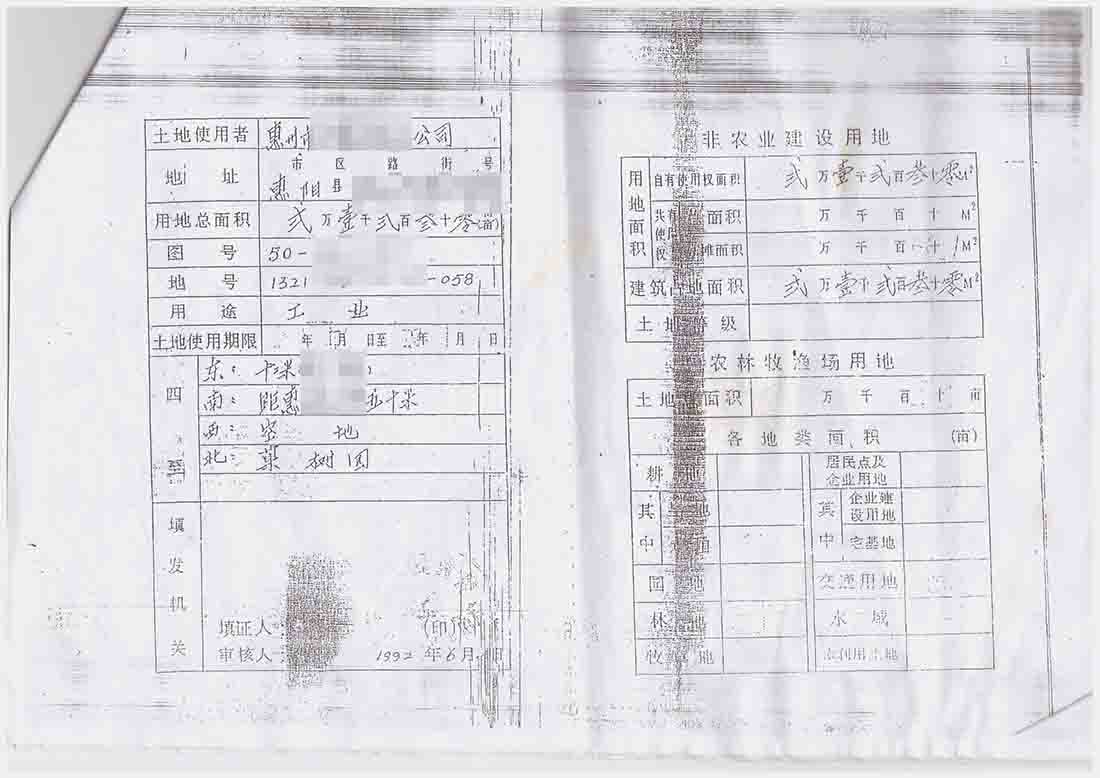 土地使用者 惠州市 公司
地址 市 区 路 街 号
惠阳县
用地总面积 贰万壹千贰百叁十零(亩)
图号 50-
地号 1321 -058
用途 工业
土地使用期限 年 月 日至 年 月 日
四至
东: 十米
南: 距惠 五十米
西: 空地
北: 菓树园
填发机关
填证人: (印)
审核人: 1992年6月 日
非农业建设用地
用地面积
自有使用权面积 贰万壹千贰百叁十零M²
共有使用权 面积 万 千 百 十 M²
摊面积 万 千 百 十 M²
建筑占地面积 贰万壹千贰百叁十零M²
土地等级
农林牧渔场用地
土地总面积 万 千 百 十 亩
各地类面积 (亩)
耕地 居民点及企业用地
其中 其中 企业建设用地
宅基地
园地 交通用地
林地 水域
牧 地 未利用土地